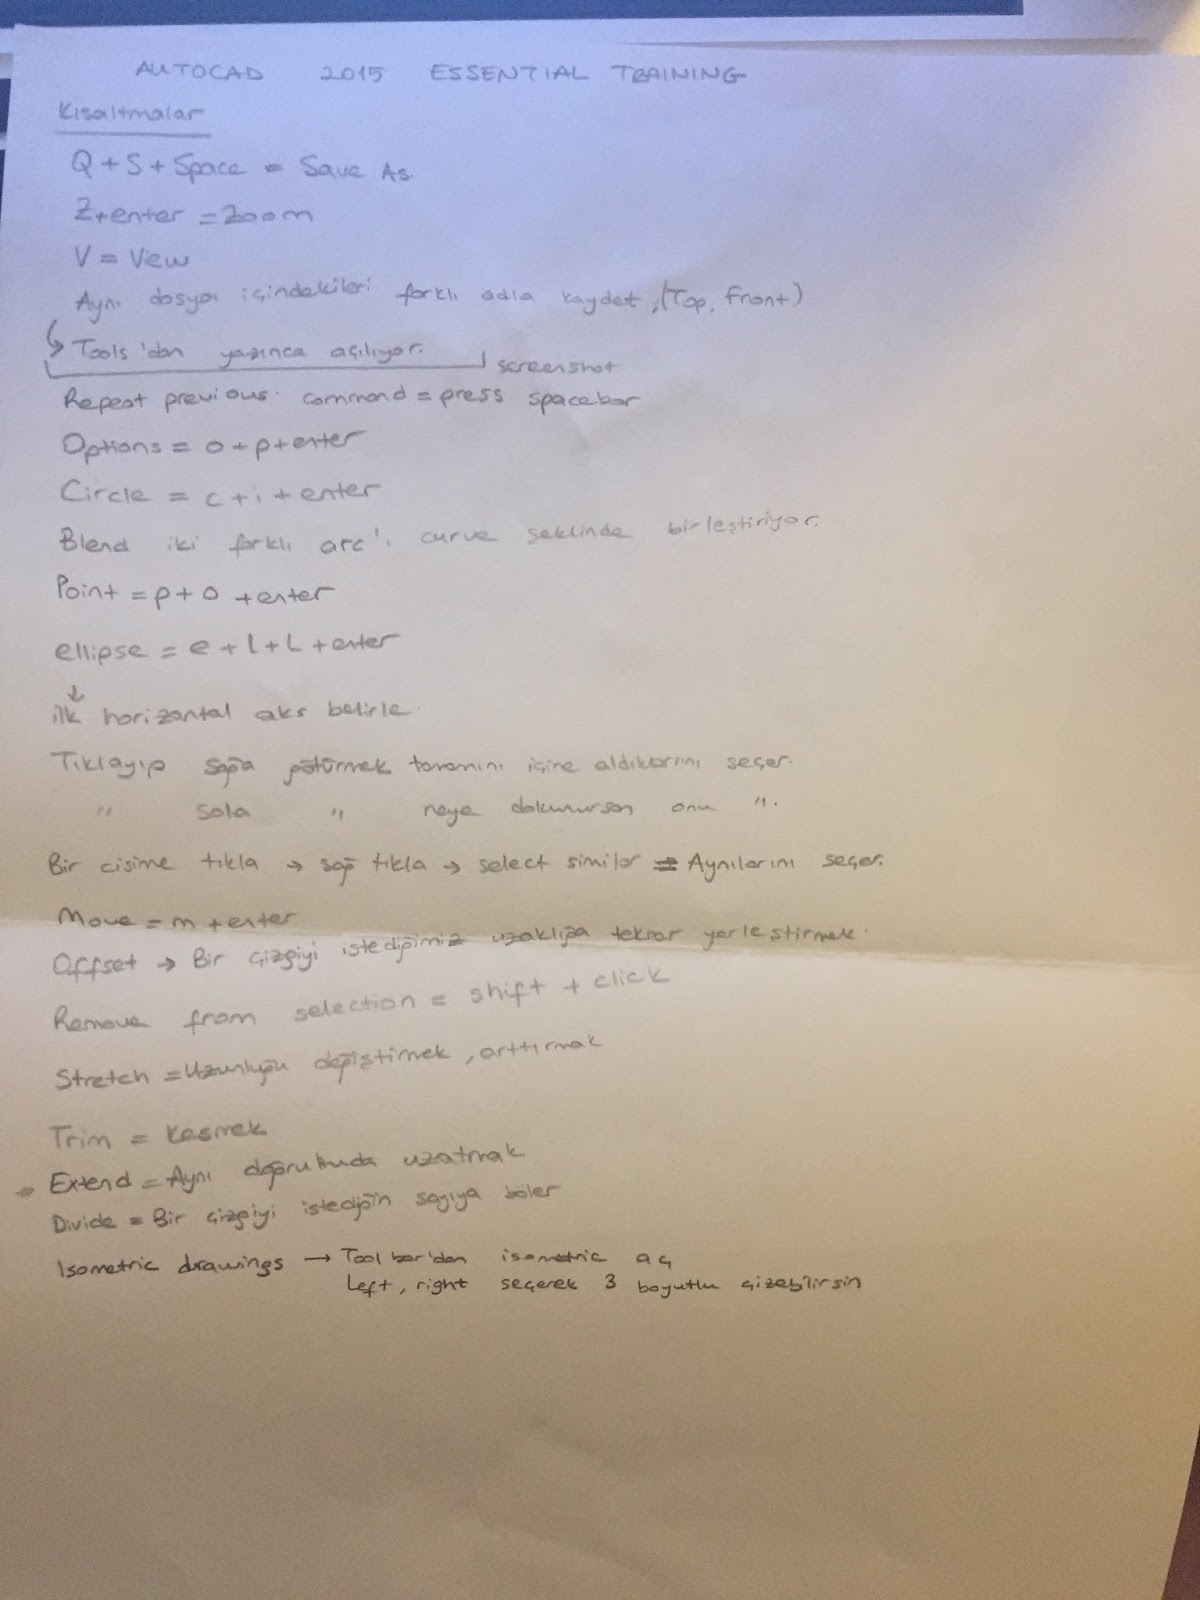 AUTOCAD 2015 ESSENTIAL TRAINING
Kısaltmalar
Q + S + Space = Save As
Z+enter = Zoom
V = View
Aynı dosya içindekileri farklı adla kaydet, (Top, Front)
Tools'dan yazınca açılıyor.
screenshot
Repeat previous command = press spacebar
Options = o + p + enter
Circle = c + i + enter
Blend iki farklı arc'ı curve şeklinde birleştiriyor.
Point = p + o + enter
ellipse = e + l + L + enter
ilk horizontal aks belirle
Tıklayıp sağa götürmek tamamını içine aldıklarını seçer.
" sola " neye dokunursan onu ".
Bir cisime tıkla → sağ tıkla → select similar = Aynılarını seçer.
Move = m + enter
Offset → Bir çizgiyi istediğimiz uzaklığa tekrar yerleştirmek
Remove from selection = shift + click
Stretch = Uzunluğu değiştirmek, arttırmak
Trim = Kesmek
Extend = Aynı doğrultuda uzatmak
Divide = Bir çizgiyi istediğin sayıya böler
Isometric drawings → Tool bar'dan isometric aç
left, right seçerek 3 boyutlu çizebilirsin